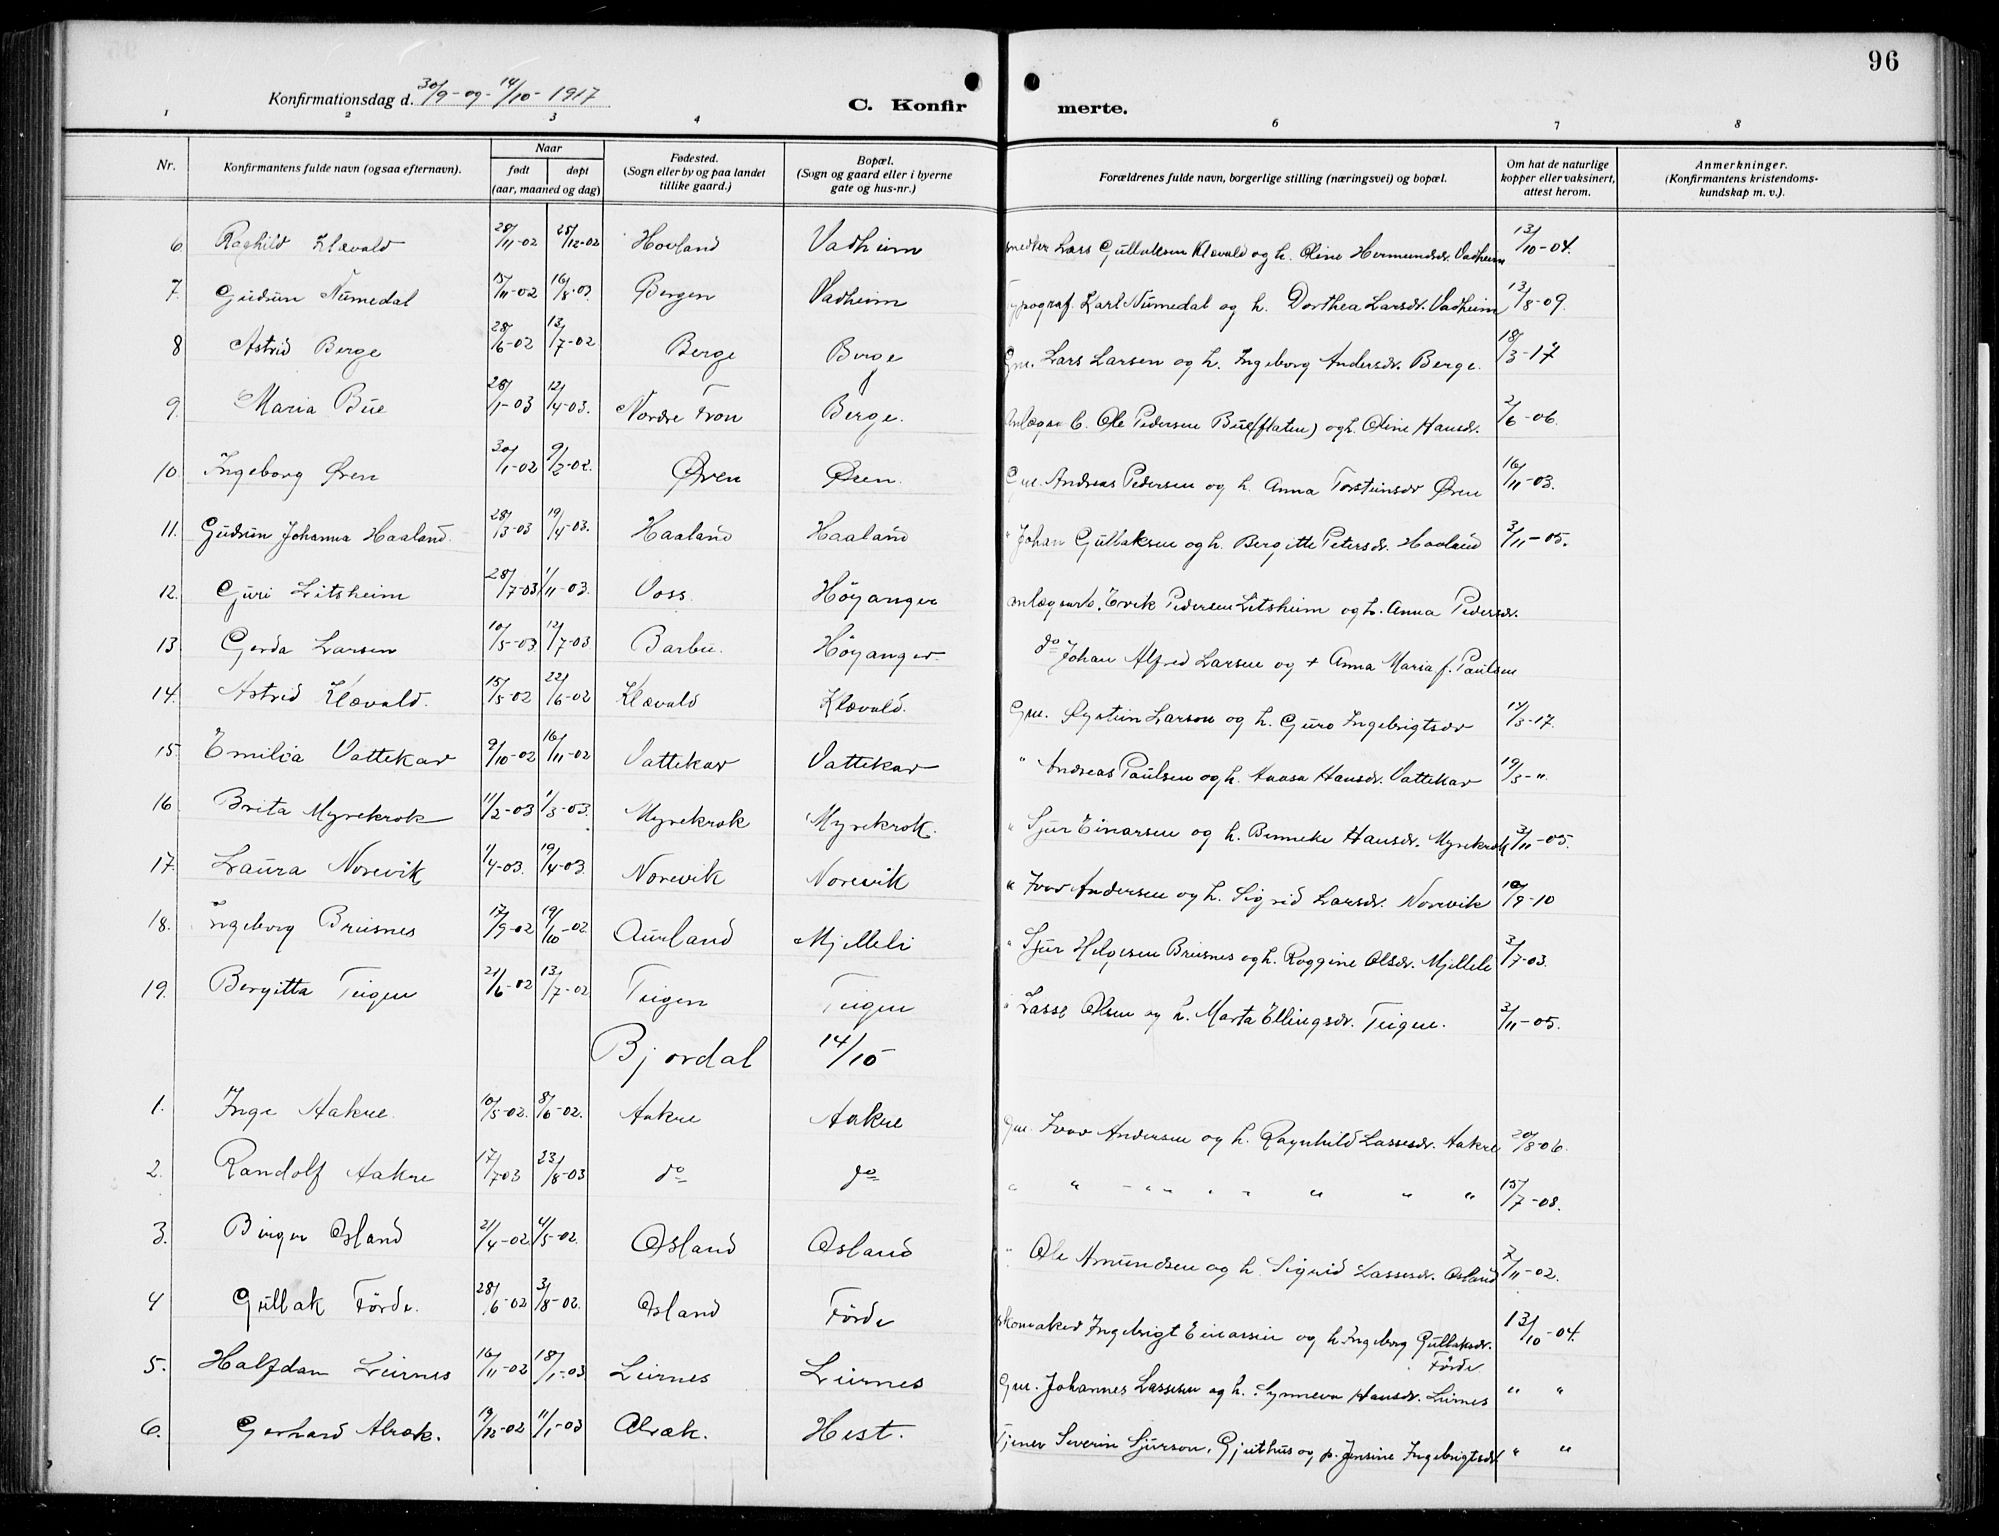 96
Konfirmationsdag d. 30/9 - og - 14/10 - 1917
C. Konfirmerte.
1 2 3 4 6 7 8
Nr. Konfirmantens fulde navn (ogsaa efternavn). Naar født døpt (aar, maaned og dag) Fødested. (Sogn eller by og paa landet tillike gaard.) Bopæl. (Sogn og gaard eller i byerne gate og hus-nr.) Forældrenes fulde navn, borgerlige stilling (næringsvei) og bopæl. Om hat de naturlige kopper eller vaksinert, attest herom. Anmerkninger. (Konfirmantens kristendomskundskap m. v.).
6 Raghild Klævold 28/11-02 25/12-02 Hovland Vadheim Lars Gullaksen Klævold og h. Oline Hermundsdr. Vadheim 13/10-04.
7. Gudrun Numedal 15/11-02 16/8-03 Bergen Vadheim Typograf. Karl Numedal og h. Dorthea Larsdr. Vadheim 13/8-09.
8 Astrid Berge 28/6-02 13/7-02 Berge Berge Gm. Lars Larsen og h. Ingeborg Andersdr. Berge. 18/3-17
9. Maria Bue 26/1-03 12/4-03. Nordre Fron Berge. Anlægsarb. Ole Pedersen Bue (flaten) og h. Oline Hansdr. 2/6-06.
10. Ingeborg Øren 30/1-02 9/2-02. Øren Øren. Gm. Andreas Pedersen og h. Anna Torsteinsdr Øren 16/11-03.
11. Gudrun Johanna Haaland. 28/3-03 19/4-03. Haaland Haaland " Johan Gullaksen og h. Bergitte Petersdr. Haaland 3/11-05.
12. Guri Litsheim 28/7-03 1/11-03. Voss. Höyanger anlægsarb. Erik Pedersen Litsheim og h. Anna Pedersdr.
13 Gerda Larsen 10/5-03 12/7-03. Barbu. Höyanger. do Johan Alfred Larsen og + Anna Maria f. Paulsen
14. Astrid Klævold. 15/5-02 22/6-02 Klævold Klævold. Gm. Øystein Larson og h. Guro Ingebrigtsdr 17/3-17.
15. Emilia Vattekar 9/10-02 16/11-02 Vattekar Vattekar " Andreas Paulsen og h. Aasa Hansdr. Vattekar 19/3-"
16. Brita Myrekrok 11/2-03 1/3-03. Myrekrok Myrekrok. " Sjur Einarsen og h. Benneke Hansdr. Myrekrok 3/11-05.
17. Laura Norevik 1/4-03. 19/4-03 Norevik Norevik " Ivar Andersen og h. Sigrid Larsdr. Norevik 10/9-10
18. Ingeborg Brusnes 17/9-02 19/10-02 Aurland Mjelleli " Sjur Helgesen Brusnes og h. Roggine Olsdr. Mjelleli 3/7-03.
19. Bergitta Teigen 21/6-02 13/7-02 Teigen Teigen " Lasse Olsen og h. Marta Ellingsdr. Teigen. 3/11-05.
Bjordal 14/10
1. Inge Aakre. 10/5-02. 8/6-02. Aakre Aakre Gm. Ivar Andersen og h. Ragnhild Lassesdr. Aakre 20/8-06.
2. Randolf Aakre 17/7-03 23/8-03 do do " " - " " " " " " " 15/7-08.
3. Birger Osland 21/4-02 4/5-02. Osland Osland " Ole Amundsen og h. Sigrid Lassesdr. Osland 7/11-02.
4 Gullak Förde. 28/6-02 3/8-02. Osland Förde skomaker Ingebrigt Einarsen og h. Ingeborg Gullaksdr. Förde 13/10-04.
5. Halfdan Livnes 16/11-02 18/1-03 Livnes Livnes Gm. Johannes Lassesen og h. Synneva Hansdr. Livnes " "
6. Gerhard Alræk. 19/12-02 11/1-03 Alræk. Hest. Tjener Severin Sjurson, Gjeithus og p. Jensine Ingebrigtsdr " "